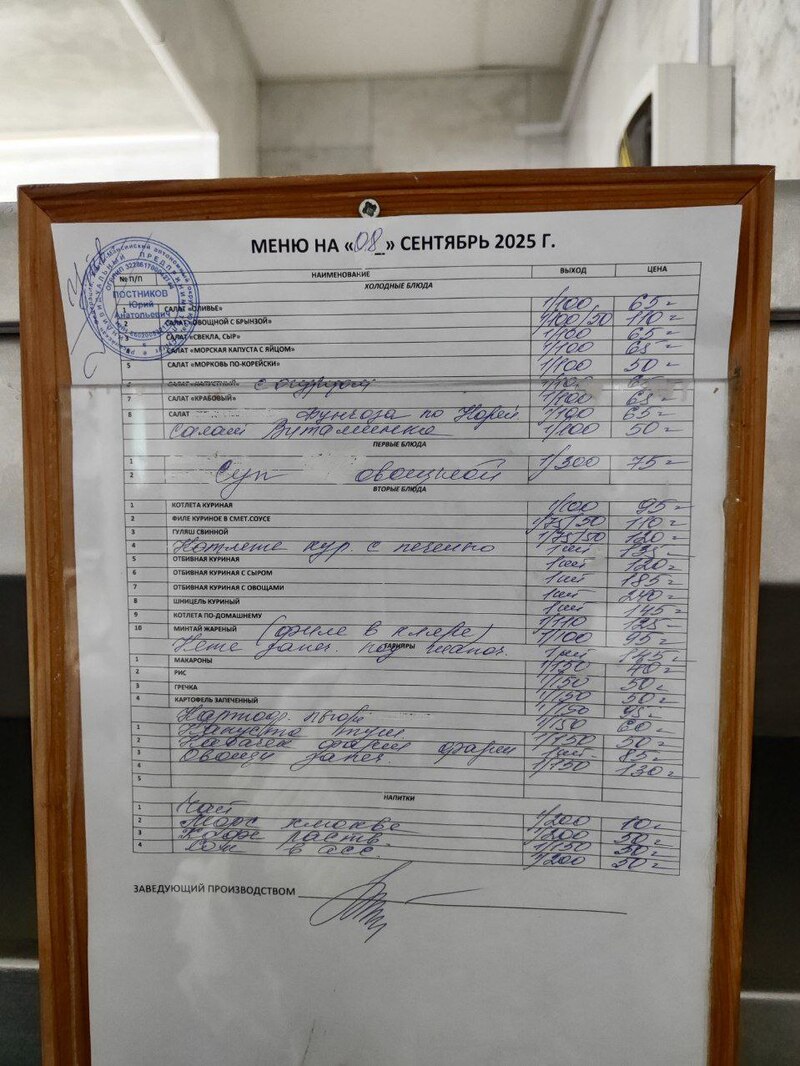 МЕНЮ НА «08» СЕНТЯБРЬ 2025 Г.
№ П/П НАИМЕНОВАНИЕ ВЫХОД ЦЕНА
ПОСТНИКОВ
Юрий
Анатольевич
ХОЛОДНЫЕ БЛЮДА
САЛАТ «ОЛИВЬЕ» 1/100 65=
2 САЛАТ «ОВОЩНОЙ С БРЫНЗОЙ» 1/100/50 110=
3 САЛАТ «СВЕКЛА, СЫР» 1/100 65=
4 САЛАТ «МОРСКАЯ КАПУСТА С ЯЙЦОМ» 1/100 65=
5 САЛАТ «МОРКОВЬ ПО-КОРЕЙСКИ» 1/100 50=
6 САЛАТ «КАПУСТНЫЙ» с огурцом 1/100
7 САЛАТ «КРАБОВЫЙ» 1/100 65=
8 САЛАТ Фунчоза по Корей 1/100 65=
Салат Витаминка 1/100 50=
ПЕРВЫЕ БЛЮДА
1
2 Суп овощной 1/300 75=
ВТОРЫЕ БЛЮДА
1 КОТЛЕТА КУРИНАЯ 1/100 95=
2 ФИЛЕ КУРИНОЕ В СМЕТ.СОУСЕ 1/75/50 110=
3 ГУЛЯШ СВИННОЙ 1/75/50 120=
4 Котлета кур. с печенью 1шт 135=
5 ОТБИВНАЯ КУРИНАЯ 1шт 120=
6 ОТБИВНАЯ КУРИНАЯ С СЫРОМ 1шт 185=
7 ОТБИВНАЯ КУРИНАЯ С ОВОЩАМИ 1шт 240=
8 ШНИЦЕЛЬ КУРИНЫЙ 1шт 145=
9 КОТЛЕТА ПО-ДОМАШНЕМУ 1/110 125=
10 МИНТАЙ ЖАРЕНЫЙ (филе в кляре) 1/100 95=
запеч. под 1шт 145=
ГАРНИРЫ
1 МАКАРОНЫ 1/150 40=
2 РИС 1/150 50=
3 ГРЕЧКА 1/150 50=
4 КАРТОФЕЛЬ ЗАПЕЧЕННЫЙ 1/150
Картоф. пюре 1/150 60=
1 Капуста туш 1/150 50=
2 Кабачек фарш фарш 1шт 85=
3 Овощи запеч. 1/150 130=
4
5
НАПИТКИ
1 Чай 1/200 10=
2 Морс клюкве 1/200 50=
3 Кофе раств. 1/150 50=
4 Сок в асс. 1/200 50=
ЗАВЕДУЮЩИЙ ПРОИЗВОДСТВОМ